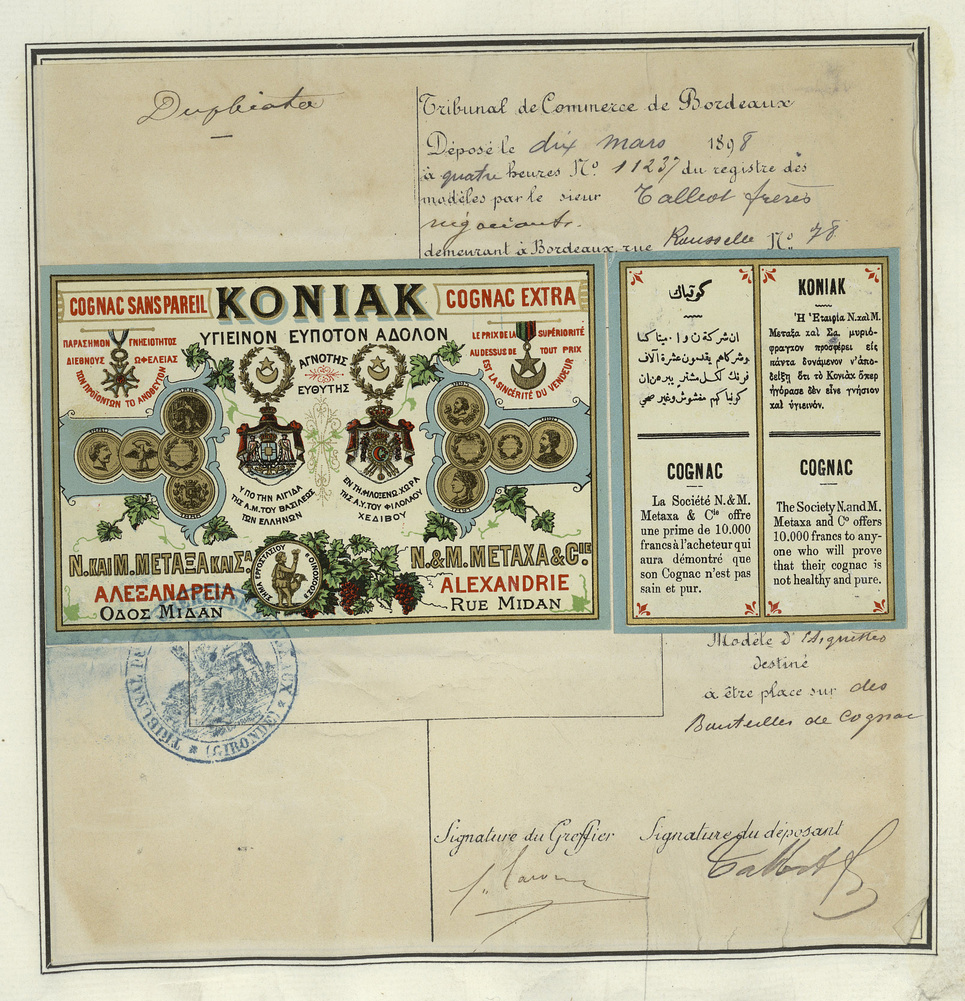 Duplicata
Tribunal de Commerce de Bordeaux
Déposé le dix mars 1898
à quatre heures No. 11237 du registre des
modèles par le sieur Talbot frères
négociants.
demeurant à Bordeaux, rue Rousselle No. 78
COGNAC SANS PAREIL
KONIAK
COGNAC EXTRA
ΥΓΙΕΙΝΟΝ ΕΥΠΟΤΟΝ ΑΔΟΛΟΝ
ΠΑΡΑΣΗΜΟΝ ΓΝΗΣΙΟΤΗΤΟΣ
ΔΙΕΘΝΟΥΣ ΩΦΕΛΕΙΑΣ
ΤΩΝ ΠΡΟΪΟΝΤΩΝ ΤΟ ΑΝΟΘΕΥΤΟΝ
ΑΓΝΟΤΗΣ
ΕΥΘΥΤΗΣ
LE PRIX DE LA SUPÉRIORITÉ
AU DESSUS DE TOUT PRIX
EST LA SINCÉRITÉ DU VENDEUR
ΥΠΟ ΤΗΝ ΑΙΓΙΔΑ
ΤΗΣ Α.Μ. ΤΟΥ ΒΑΣΙΛΕΩΣ
ΤΩΝ ΕΛΛΗΝΩΝ
ΕΝ ΤΗ ΦΙΛΟΞΕΝΩ ΧΩΡΑ
ΤΗΣ Α.Υ. ΤΟΥ ΦΙΛΟΛΑΟΥ
ΧΕΔΙΒΟΥ
Ν. ΚΑΙ Μ. ΜΕΤΑΞΑ ΚΑΙ ΣΑ.
ΑΛΕΞΑΝΔΡΕΙΑ
ΟΔΟΣ ΜΙΔΑΝ
ΣΗΜΑ ΕΡΓΟΣΤΑΣΙΟΥ
Ο ΟΙΝΟΧΟΟΣ
N. & M. METAXA & CIE
ALEXANDRIE
RUE MIDAN
كونياك
KONIAK
Ἡ Ἑταιρία Ν. καὶ Μ.
Μεταξα καὶ Σα. μυριό-
φραγγον προσφέρει εἰς
πάντα δυνάμενον ν'ἀπο-
δείξῃ ὅτι τὸ Κονιὰκ ὅπερ
ἠγόρασε δὲν εἶνε γνήσιον
καὶ ὑγιεινόν.
COGNAC
La Société N. & M.
Metaxa & Cie offre
une prime de 10.000
francs à l'acheteur qui
aura démontré que
son Cognac n'est pas
sain et pur.
COGNAC
The Society N. and M.
Metaxa and Co offers
10.000 francs to any-
one who will prove
that their cognac is
not healthy and pure.
TRIBUNAL DE COMMERCE DE BORDEAUX
(GIRONDE)
Modèle d'Etiquettes
destiné
à être placé sur des
Bouteilles de Cognac
Signature du Greffier
Signature du déposant